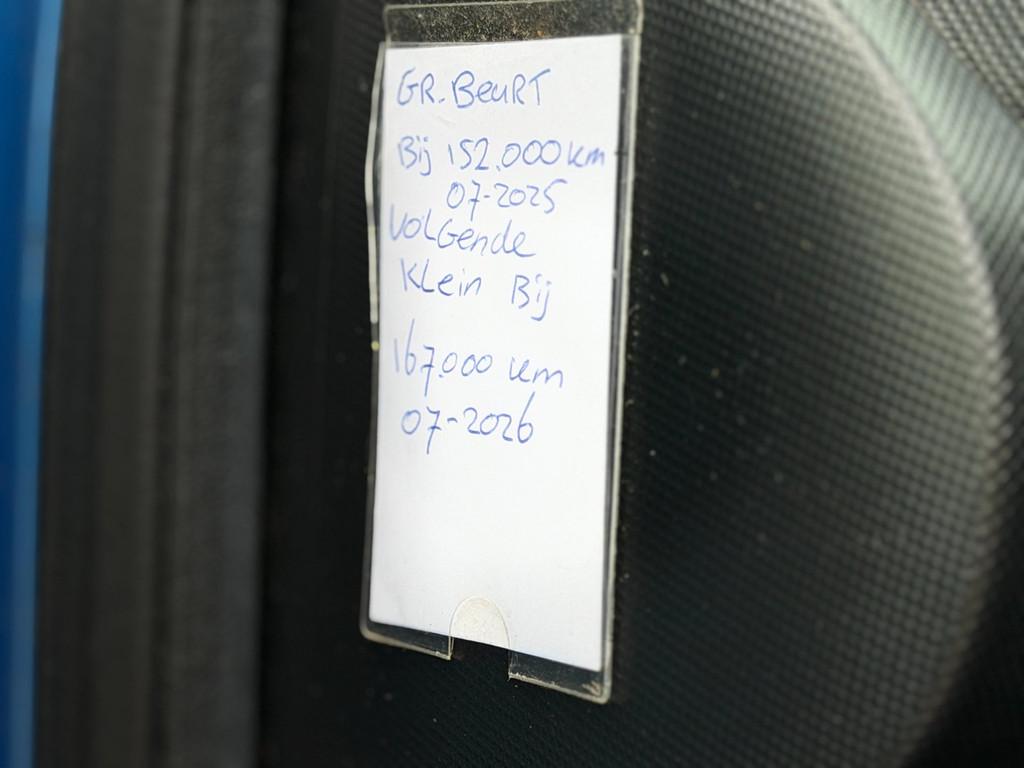 GR. BeuRT
Bij 152.000 km
07-2025
VOLGende
KLein Bij
167.000 km
07-2026